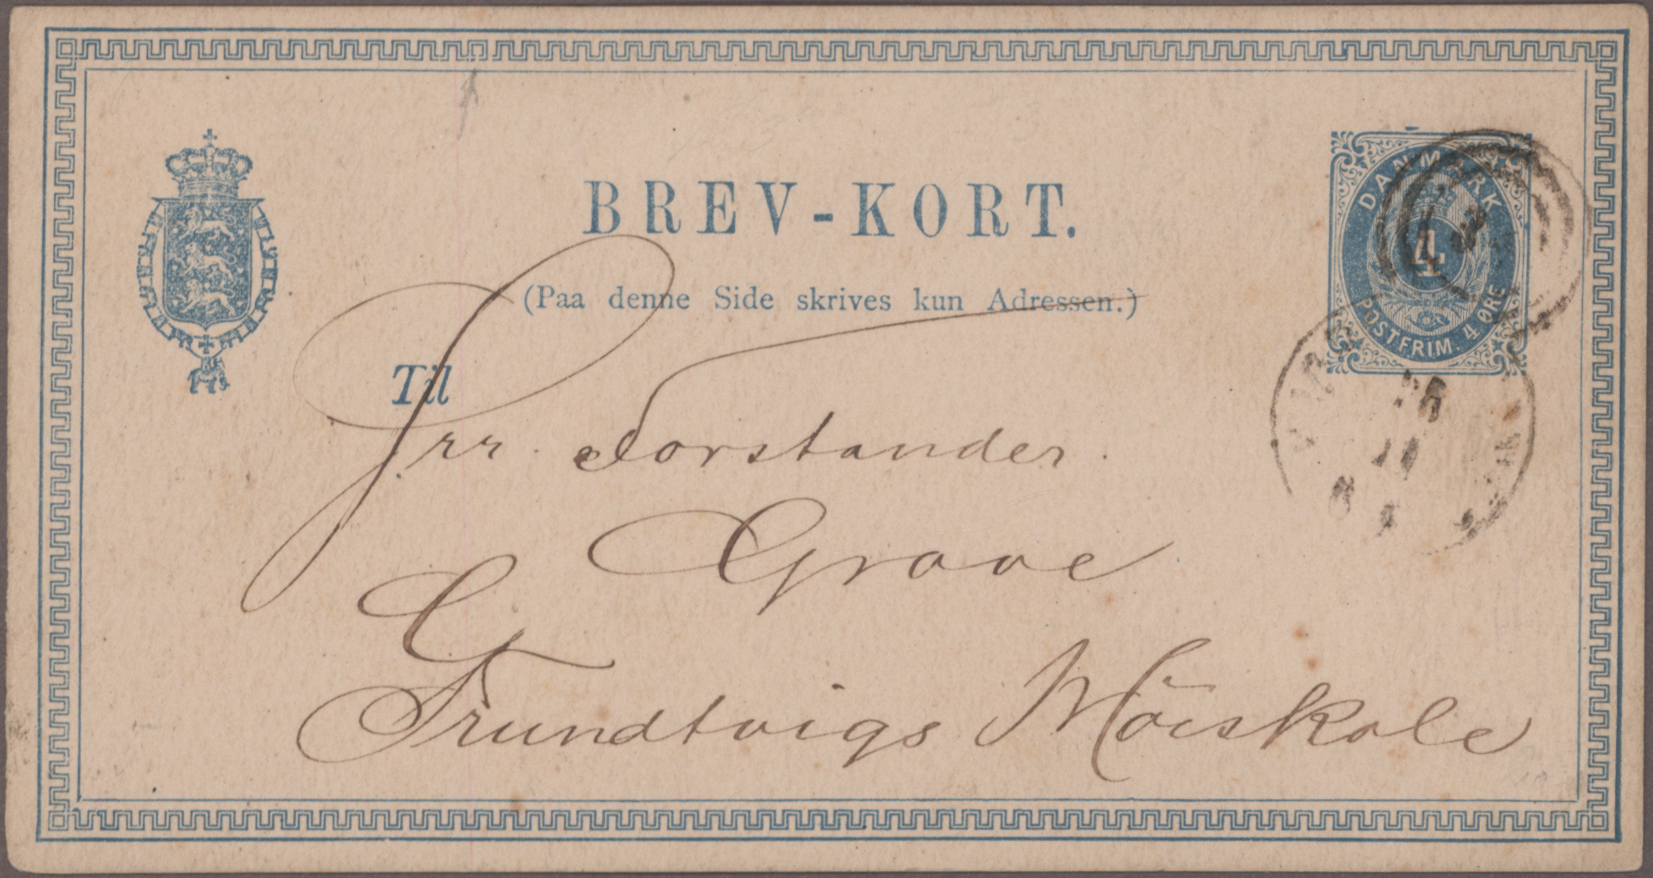 BREV-KORT.
(Paa denne Side skrives kun Adressen.)
DANMARK
4
POSTFRIM. 4 ØRE
Til
Hrr. Forstander
Grove
Grundtvigs Höiskole